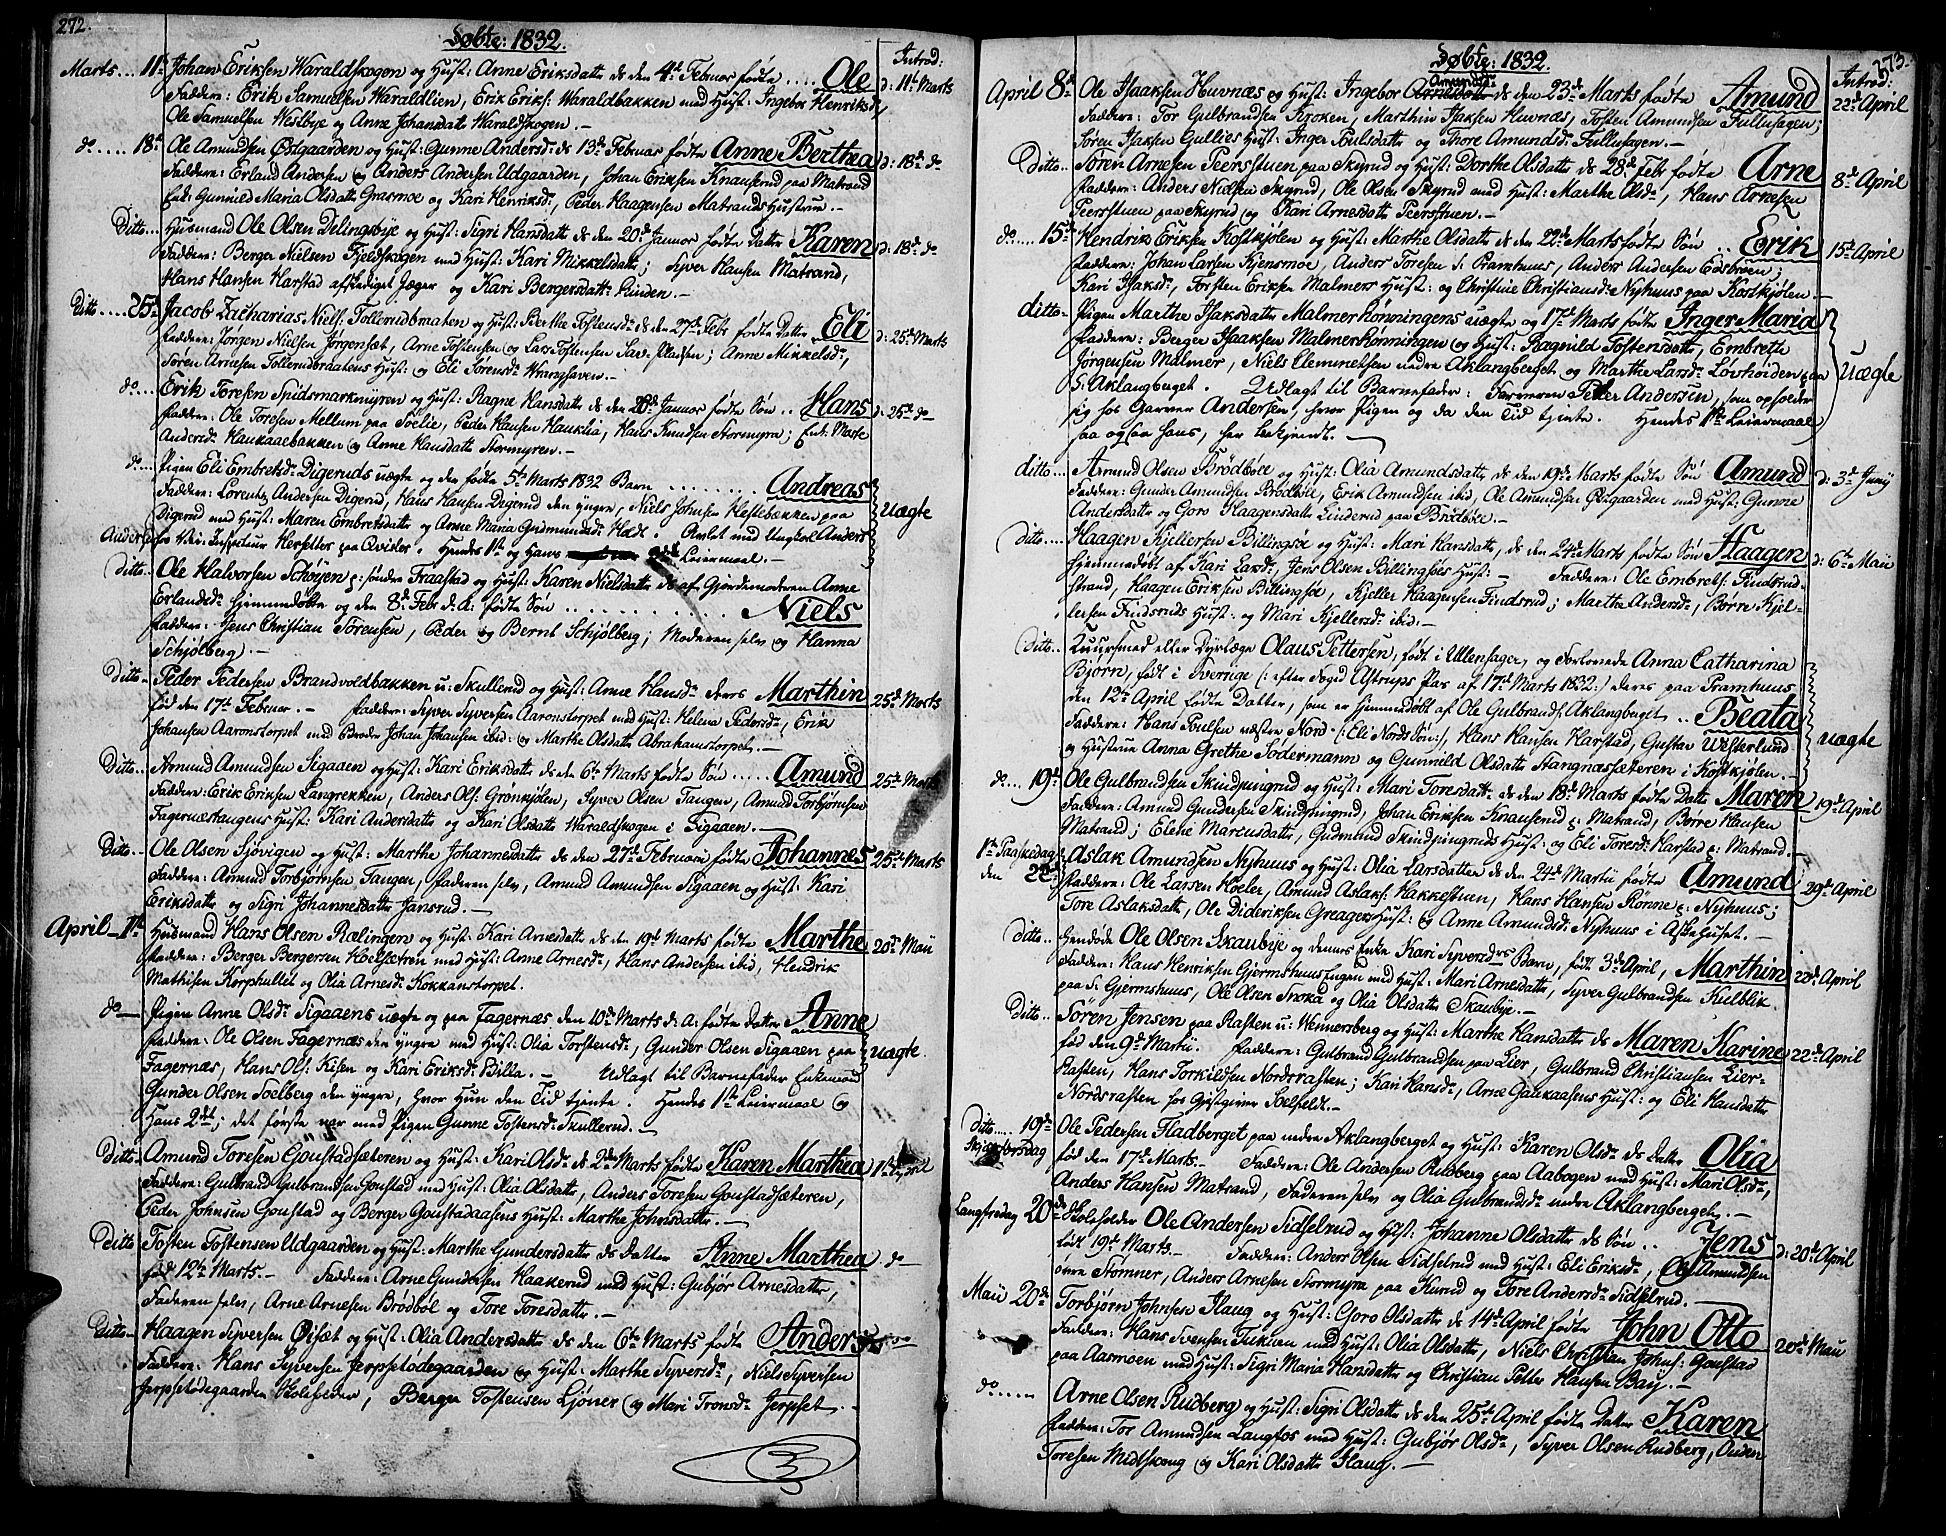 272.
Døbte: 1832.
Introd:
Marts... 11te Johan Eriksen Waraldskogen og Hust: Anne Eriksdatter ds den 4de Februar fødte .... Ole d: 11te Marts
Faddere: Erik Samuelsen Waraldlien, Erik Eriks: Waraldbakken med Hust: Ingebor Henriksdr
Ole Samuelsen Westbye og Anne Johansdatr Waraldskogen. —
do .... 18de Ole Amundsen Østgaarden og Hust: Gunne Andersdr ds 13de Februar fødte Anne Berthea d: 18de do
Faddere: Erland Andersen og Anders Andersen Udgaarden, Johan Eriksen Knauserud paa Matrand
Ent: Gunnild Maria Olsdatr Grasmoe og Kari Henriksdr, Peder Haagensen Matrands Hustrue. —
Ditto.... Huusmand Ole Olsen Delingsbye og Hust: Sigri Hansdatr ds den 20de Januar fødte Datter Karen d: 18de do
Faddere: Berger Nielsen Fjeldskogen med Hust: Kari Mikkelsdatr; Syver Hansen Matrand,
Hans Hansen Harstad afskediget Jæger og Kari Bergersdatr Linden. —
Ditto.... 25de Jacob Zacharias Niels: Tollerudbraaten og Hust: Berthe Tostensdr ds den 27de Febr fødte Datter Eli d: 25de Marts
Faddere: Jørgen Nielsen Jørgensæt, Arne Tostensen og Lars Tostensen Sæe-Pladsen; Anne Mikkelsdr,
Søren Arnesen Tollerudbraatens Hust: og Eli Sørensdr Wranghaven. —
do.... Erik Toresen Spidsmarkmyren og Hust: Ragne Hansdatter ds den 28de Januar fødte Søn .. Hans d: 25de do
Faddere: Ole Toresen Mellum paa Sælie, Peder Hansen Hauklia, Hans Knudsen Stormyra; Ent: Marte
Andersdr Haukaaebakken og Anne Hansdatter Stormyren. —
do.... Pigen Eli Embretsdr Digeruds uægte og den fødte 5te Marts 1832 Barn ........ Andreas
Faddere: Lorentz Andersen Digerud, Hans Hansen Digerud den yngre, Niels Johnsen Heftebakken paa Uægte
Digerud med Hust: Maren Embretsdatr og Anne Maria Gudmundsdr Holt.
Hendes 1te og Hans Leiermaal. —
Ditto.. Ole Halvorsen Schøyen p: søndre Fraastad og Hust: Karen Nielsdatter ds af Gjordemoderen Anne
Erlandsdr hjemmedøbte og den 8de Febr d. A: fødte Søn ............ Niels
Faddere: Jens Christian Sørensen, Peder og Bernt Schjølberg; Moderen selv og Hanna
Schjølberg. —
Ditto — Peder Pedersen Brandvoldbakken u: Skullerud og Hust: Anne Hansdr deres Marthin 25de Marts
fød den 17de Februar. — Faddere: Syver Syversen Aaronstorpet med Hust: Helene Pedersdr, Erik
Johansen Aaronstorpet med Broder Johan Johansen ibid: og Marthe Olsdatter Abrahamstorpet. —
Ditto.. Amund Amundsen Sigaaen og Hust: Kari Eriksdatr ds den 6te Marts fødte Søn ..... Amund 25de Marts
Faddere: Erik Eriksen Langrekken, Anders Ols: Grønkjølen, Syver Olsen Tangen, Amund Torbjørnsen
Fagernæstangens Hust: Kari Andersdatr og Kari Olsdatr Waraldskogen i Sigaaen. —
Ditto.. Ole Olsen Sjøvigen og Hust: Marthe Johannesdatter ds den 27de Februarii fødte Johannes 25de Marts
Faddere: Amund Torbjørnsen Tangen, Faderen selv, Amund Amundsen Sigaaen og Hust: Kari
Eriksdatr og Sigri Johannesdatter Jansrud. —
April — 1te Huusmand Hans Olsen Rælingen og Hust: Kari Arnesdatr ds den 19de Marts fødte Marthe 20de Maii
Faddere: Berger Bergersen Hoelsætren med Hust: Anne Arnesdr, Hans Andersen ibid, Hendrik
Mathisen Korphullet og Olia Arnesdr Kokkanstorpet.
do — Pigen Anne Olsdr Sigaaens uægte og paa Fagernæs den 10de Marts d: A: fødte Datter Anne
Faddere: Ole Olsen Fagernæs den yngre med Hust: Olia Torstensdr, Gunder Olsen Sigaaen paa Uægte
Fagernæs, Hans Ols: Kisen og Kari Eriksdr Billa. — Udlagt til Barnefader Enkemand
Gunder Olsen Soelberg den yngre, hvor Hun den Tid tjente. Hendes 1te Leiermaal og
Hans 2det; det første var med Pigen Gunne Tostensdr Skullerud. —
Ditto — Amund Toresen Goustadsæteren og Hust: Kari Olsdr ds 2den Marts fødte Karen Marthea 1te April
Faddere: Gulbrand Gulbrandsen Goustad med Hust: Olia Olsdatr, Anders Toresen Goustadsæteren,
Peder Johnsen Goustad og Berger Goustadaasens Hust: Marthe Johnsdatr. —
Ditto Tosten Tostensen Udgaarden og Hust: Marthe Gundersdatr ds Datter Anne Marthea do —
fød 12te Marts. — Faddere: Arne Gundersen Haakerud med Hust: Gubjør Arnesdatr,
Faderen selv, Arne Arnesen Brødbøl og Tore Toresdatr. —
Ditto — Haagen Syversen Øisæt og Hust: Olia Andersdatter ds den 6te Marts født Anders do
Faddere: Hans Syversen Jerpsetødegaarden og Hust: Marthe Syversdr, Niels Syversen
Jerpsetødegaarden Skoleholder, Berger Tostensen Ljøner og Mari Tronsdr Jerpset. —
273.
Døbte: 1832.
Introd:
April 8de Ole Isaaksen Huvnæs og Hust: Ingebor Amundsdr ds den 23de Marts fødte Amund 22de April
Faddere: Tor Gulbrandsen Kroken, Marthin Isaksen Huvnæs, Tosten Amundsen Fulluhagen;
Søren Isaksen Gullies Hust: Inger Poulsdatr og Thore Amundsdr Fulluhagen. —
Ditto.. Søren Arnesen Peersstuen paa Skyrud og Hust: Dorthe Olsdatr ds 28de Febr fødte Arne 8de April
Faddere: Anders Nielsen Skyrud, Ole Olsen Skyrud med Hust: Marthe Olsdr, Hans Arnesen
Peersstuen paa Skyrud og Kari Arnesdatr Peersstuen. —
do.... 15de Hendrik Eriksen Kostkjølen og Hust: Marthe Olsdatr ds 22de Marts fødte Søn .. Erik 15de April
Faddere: Johan Larsen Kjensmoe, Anders Toresen S: Pramhuus, Anders Andersen Edsbroen;
Kari Isaksdr, Torsten Eriksen Malmers Hust: og Christine Christiansdr Nyhuus paa Kostkjølen —
ditto — Pigen Marthe Isaksdatr Malmerkønningens uægte og 17de Marts fødte Inger Maria
Faddere: Berger Isaaksen Malmerkønningen og Hust: Ragnild Tostensdatr, Embrett
Jørgensen Malmer, Niels Clemmetsen nedre Aklangberget og Marthe Larsdr Lovhøiden paa Uægte
S: Aklangberget. Udlagt til Barnefader: Farveren Petter Andersen, som opholder
sig hos Garver Andersen, hvor Pigen og da den Tid tjente. Hendes 1te Leiermaal
saa ogsaa hans, her bekjendt. —
ditto.... Amund Olsen Brødbøl og Hust: Olia Amundsdatr ds den 19de Marts fødte Søn Amund d: 3de Junij
Faddere: Gunder Amundsen Brødbøl, Erik Amundsen ibid, Ole Amundsen Østgaarden med Hust: Gunne
Andersdatr og Goro Haagensdatr Linderud paa Brødbøl. —
ditto.... Haagen Kjellersen Billingsøe og Hust: Mari Hansdatr, ds den 24de Marts fødte Søn Haagen d: 6te Maii
hjemmedøbt af Kari Larsdr, Jens Olsen Billingsøes Hust: — Faddere: Ole Embrets: Findsrud-
strand, Haagen Eriksen Billingsøe, Kjeller Haagensen Findsrud; Marthe Andersdr, Børre Kjel-
lersen Findsruds Hust: og Mari Kjellersdr ibid: —
ditto.. Kuursmed eller Dyrlæge Olaus Pettersen, født i Ullensager, og Forlovede Anna Catharina
Bjørn, født i Sverrige (: efter Foged Astrups Pas af 17de Marts 1832 :) deres paa Pramhuus
den 12te April fødte Datter, som er hjemmedøbt af Ole Gulbrands: Aklangberget .. Beata
Faddere: Hans Poulsen næstre Nord (: Eli Nords Søn :), Hans Hansen Harstad, Gustav Westerlund Uægte
og Hustrue Anna Grethe Södermann og Gunnild Olsdatr Hangnæssæteren i Kostkjølen. —
do.... 19de Ole Gulbrandsen Skindjungrud og Hust: Mari Toresdatr ds den 18de Marts fødte Datter Maren 19de April
Faddere: Amund Gundersen Skindjungrud, Johan Eriksen Knauserud p: Matrand, Børre Hansen
Matrand; Elene Marcusdatr, Gudmund Skindjungruds Hust: og Eli Toresdr Harstad p: Matrand. —
1te Paaskedag den 22de Aslak Amundsen Nyhuus og Hust: Olia Larsdatter ds den 24de Martii fødte Amund 29de April
Faddere: Ole Larsen Hoeler, Amund Aslaks: Hakkelstuen, Hans Hansen Rønne p: Nyhuus;
Tore Aslaksdatr, Ole Dideriksen Greagers Hust: og Anne Amundsdr Nyhuus i Askehuset. —
ditto.. Hendøde Ole Olsen Skaubye og dennes Enke Kari Syversdrs Barn, født 3de April, Marthin 22de April
Faddere: Hans Henriksen Gjermshuus Engen med Hust: Mari Arnesdatr, Syver Gulbrandsen Kielblik
paa S: Gjermshuus, Ole Olsen Snoka og Olia Olsdatr Skaubye. —
Ditto.. Søren Jensen paa Rasten u: Wennersberg og Hust: Marthe Hansdatr ds Maren Karine 22de April
fød den 9de Martii. Faddere: Gulbrand Gulbrandsen paa Lier, Gulbrand Christiansen Lier-
hasten, Hans Torkildsen Nordrasten; Kari Hansdr, Arne Gaukaasens Hust: og Eli Hansdatter
Nordrasten hos Gjestgiver Soelfeldt. —
Ditto.... 19de Skjærtorsdag Ole Pedersen Fladberget paa nedre Aklangberget og Hust: Karen Olsdr ds Datter Olia
fød den 17de Marts. — Faddere: Ole Andersen Rudberg paa Aabogen med Hust: Mari Olsdr,
Anders Hansen Matrand, Faderen selv og Olia Gulbrandsdr nedre Aklangberget. —
Langfredag 20de Skoleholder Ole Andersen Sidselrud og Hust: Johanne Olsdatr ds Søn .. Jens d: 20de April
født 19de Marts. — Faddere: Anders Olsen Sidselrud med Hust: Eli Eriksdr, Ole Amundsen
øvre Stømner, Anders Arnesen Stormyra paa Kurud og Tore Andersdr Sidselrud. —
Maii 20de Torbjørn Johnsen Haug og Hust: Goro Olsdatr ds 14de April fødte John Otto 20de Maii
Faddere: Hans Svensen Tukuen med Hust: Olia Olsdatr, Niels Christian Johns: Goustad
paa Aasmoen med Hust: Sigri Maria Hansdatr og Christian Petter Hansen Bay. —
do.... Arne Olsen Rudberg og Hust: Sigri Olsdatr ds den 25de April fødte Datter Karen
Faddere: Tor Amundsen Langfos med Hust: Gubjør Olsdr, Syver Olsen Rudberg, Anders
Toresen Midtskoug og Kari Olsdatr Haug. —